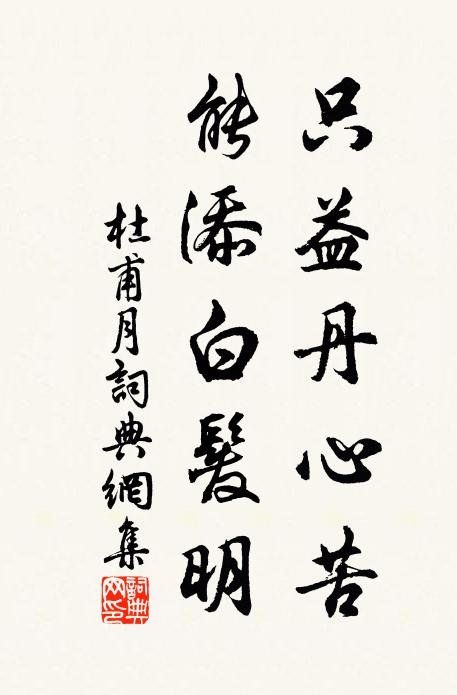 只益丹心苦
能添白髮明
杜甫月詞典網集
詞典网印